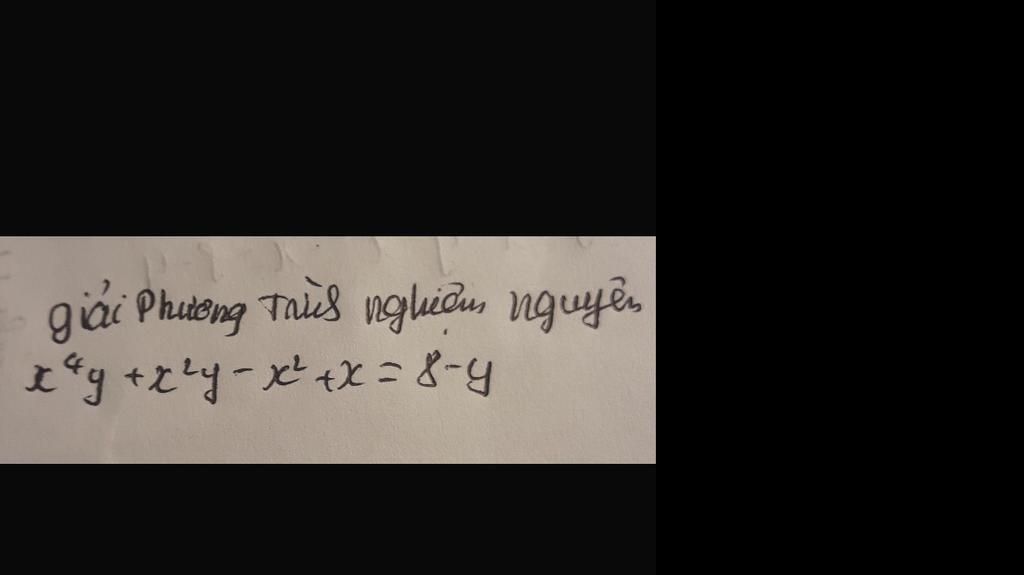 giải Phương Trình nghiệm nguyên
x⁴y + x²y - x² + x = 8 - y